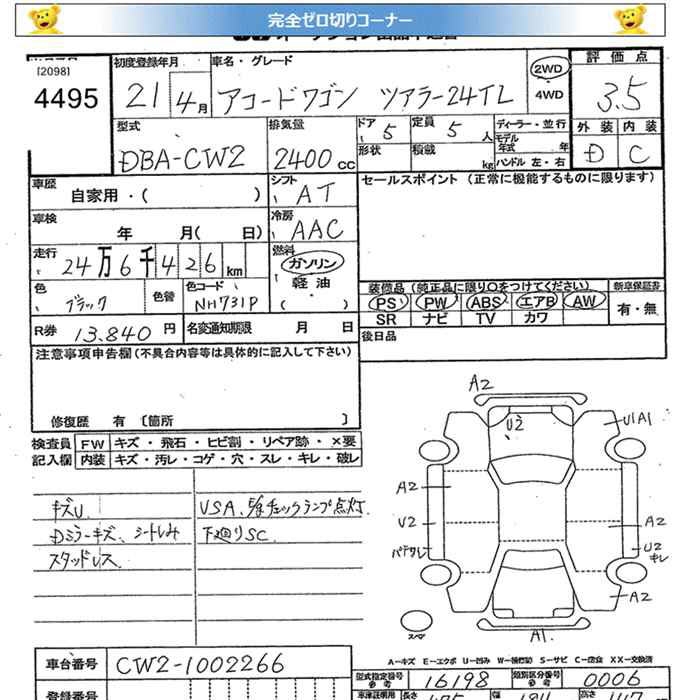 完全ゼロ切りコーナー
[2098]
4495
初度登録年月
21 4月
車名・グレード
アコードワゴン ツアラー24TL
2WD
4WD
評価点
3.5
型式
DBA-CW2
排気量
2400cc
ドア 5
定員 5人
形状
積載 kg
ディーラー・並行
モデル年式 年
ハンドル 左・右
外装 内装
D C
車歴
自家用・( )
シフト
AT
セールスポイント (正常に機能するものに限ります)
車検
年 月( 日)
冷房
AAC
走行
24万6千426km
燃料
ガソリン
軽油
( )
色
ブラック
色替
色コード
NH731P
装備品 (純正品に限り〇をつけてください)
新車保証書
PS PW ABS エアB AW
有・無
SR ナビ TV カワ
R券 13,840円
名変通知期限 月 日
後日品
注意事項申告欄 (不具合内容等は具体的に記入して下さい)
修復歴 有 [箇所 ]
検査員 記入欄
FW キズ・飛石・ヒビ割・リペア跡・×要
内装 キズ・汚レ・コゲ・穴・スレ・キレ・破レ
キズU、
Dミラーキズ、シートしみ
スタッドレス
VSA、チェックランプ点灯
下廻りSC
A2
U2
U1A1
A2
U2
A2
U2
キレ
A2
A1
スペア
車台番号
CW2-1002266
A-キズ E-エクボ U-凹み W-補修跡 S-サビ C-腐食 XX-交換済
型式指定番号
参考
16198
類別区分番号
参考
0006
登録番号
車庫証明用
長さ
幅
高さ